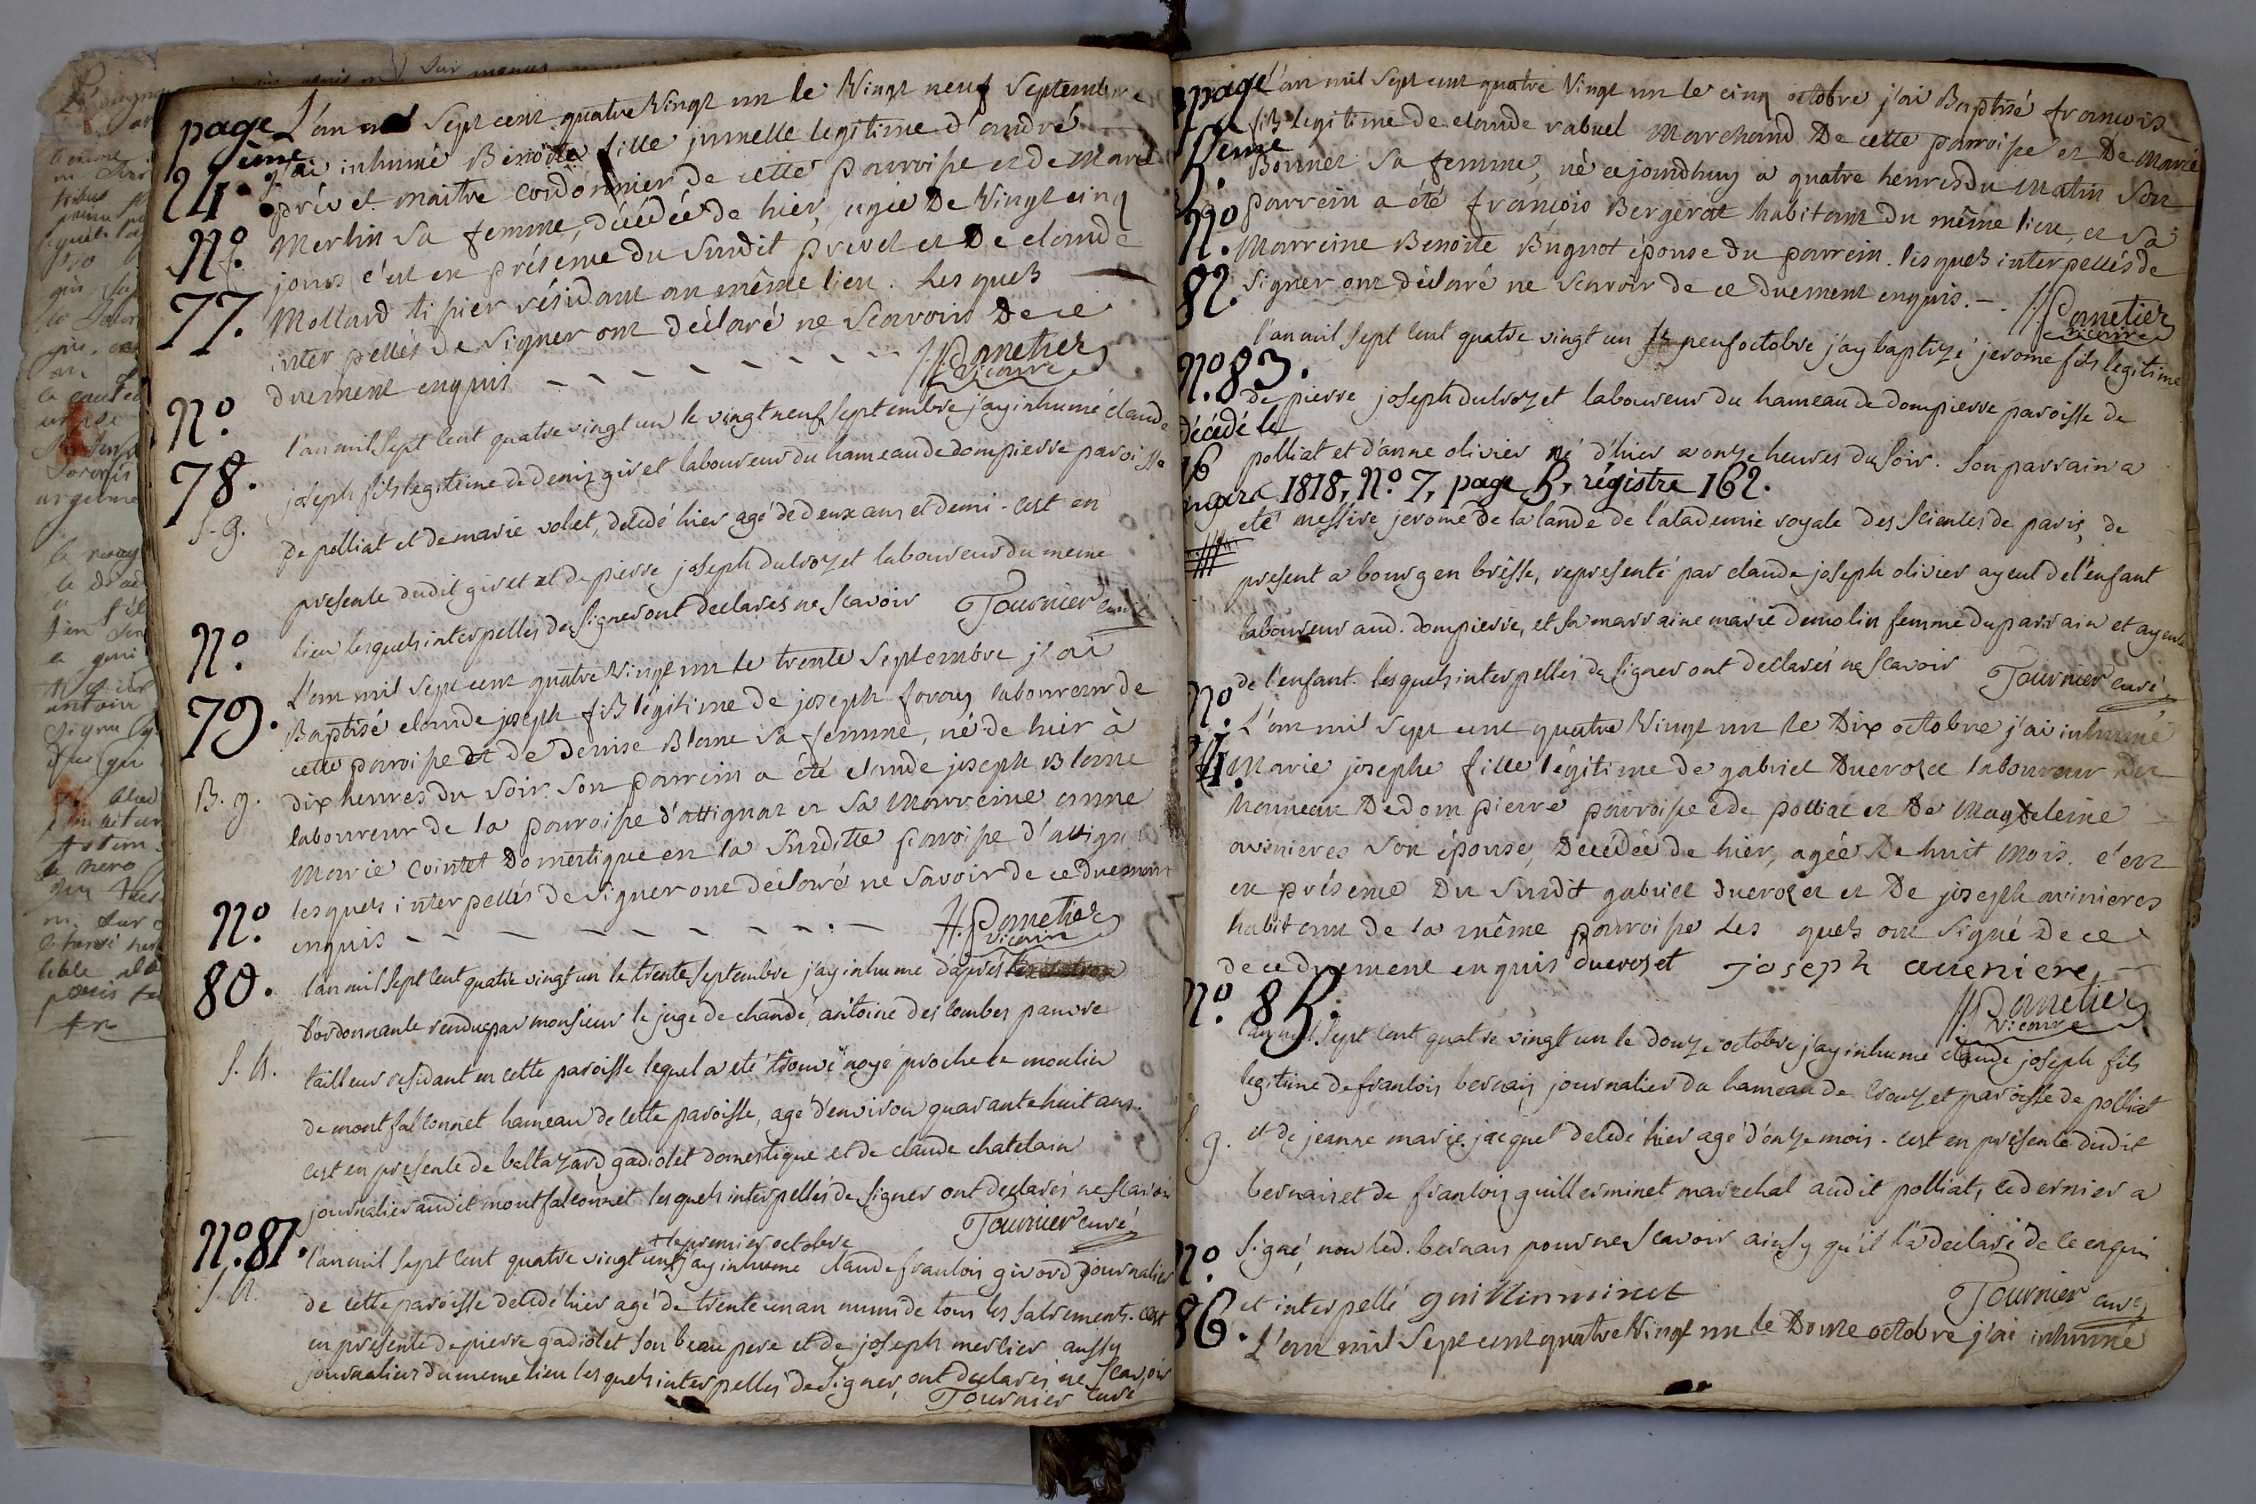 page
24.ème
L'an mil sept cent quatre Vingt un le Vingt neuf Septembre
j'ai inhumé Benoite fille jumelle legitime d'andré
prévet maitre cordonnier de cette parroisse et de Marie
Nº.
77.
Merlin sa femme, décédée de hier, agée De Vingt cinq
jours c'est en présence du Susdit prevet et De claude
Mollard tisier résidant au même lieu. Les quels
inter pellés de Signer ont déclaré ne Scavoir De ce
duement enquis - - - - - - - H Pometier
vicaire
Nº
78.
S. g.
l'an mil sept cent quatre vingt un le vingt neuf septembre j'ay inhumé claude
joseph fils legitime de denis giret laboureur du hameau de dompierre paroisse
de polliat et de marie volet, decedé hier agé de deux ans et demi. cest en
presence dudit giret et de pierre joseph ducrozet laboureur du meme
lieu lesquels interpellés de signer ont declarés ne scavoir Tournier curé
Nº.
79.
B. g.
L'an mil sept cent quatre Vingt un le trente Septembre j'ai
Baptisé claude joseph fils légitime de joseph favary laboureur de
cette parroisse et de Denise Blanc sa femme, né de hier à
dix heures du soir. Son parrein a été claude joseph Blanc
laboureur de la parroisse d'attignat et sa Marreine anne
Marie Cointet Domestique en la susditte parroisse d'attignat
lesquels interpellés de signer ont déclaré ne Savoir de ce duement
enquis - - - - - - - - - H. Pometier
vicaire
Nº.
80.
S. h.
l'an mil sept cent quatre vingt un le trente septembre j'ay inhumé d'aprés
l'ordonnance rendue par monsieur le juge de chandé, antoine des combes pauvre
tailleur residant en cette paroisse lequel a eté trouvé noyé proche le moulin
de montfalconnet hameau de cette paroisse, agé d'environ quarante huit ans.
cest en presence de baltazard gadiolet domestique et de claude chatelain
journalier audit montfalconnet lesquels interpellés de signer ont declarés ne scavoir
Tournier curé
Nº. 81.
S. h.
+ le premier octobre
l'an mil sept cent quatre vingt un + j'ay inhumé claude francois girord journalier
de cette paroisse decedé hier agé de trente un an muni de tous les sacrements. cest
en presence de pierre gadiolet son beau pere et de joseph merlier aussy
journalier du meme lieu lesquels interpellés de signer, ont declarés ne scavoir
Tournier curé
page
5.eme
L'an mil sept cent quatre Vingt un le cinq octobre j'ai Baptisé francois
fils legitime de claude rabuel Marchand De cette parroisse et De Marie
Bonnet sa femme, né ce jourd'huy a quatre heures du Matin Son
Nº.
82.
parrein a été francois Bergerat habitant du même lieu, et sa
Marreine Benoite Bugnot épouse du parrein. lesquels interpellés de
signer ont déclaré ne scavoir de ce duement enquis. - H Pometier
vicaire
Nº. 83.
l'an mil sept cent quatre vingt un le neuf octobre j'ay baptizé jerome fils legitime
de pierre joseph ducrozet laboureur du hameau de dompierre paroisse de
décédé le
polliat et d'anne olivier né d'hier a onze heures du soir. Son parrain a
16
mars 1818, Nº. 7, page 5, régistre 162.
eté messire jerome de la lande de l'academie royale des sciences de paris, de
present a bourg en brésse, representé par claude joseph olivier ayeul de l'enfant
laboureur aud. dompierre, et sa marraine marie demolin femme du parrain et ayeule
de l'enfant. lesquels interpellés de signer ont declarés ne scavoir Tournier curé
Nº.
84.
L'an mil sept cent quatre Vingt un le Dix octobre j'ai inhumé
Marie josephe fille légitime de gabriel Ducrozet laboureur du
hameau De dompierre parroisse de polliat et De Magdeleine
avinieres Son épouse, Décédée de hier, agée De huit Mois. c'est
en présence Du Susdit gabriel ducrozet et De joseph avinieres
habitant de la même parroisse Les quels ont Signé De ce
de ce duement enquis ducrozet joseph aueniere
H. Pometier
vicaire
Nº. 85.
g.
l'an mil sept cent quatre vingt un le douze octobre j'ay inhumé claude joseph fils
legitime de francois bernais journalier du hameau de crouzet paroisse de polliat
et de jeanne marie jacquet decedé hier agé d'onze mois. cest en presence dudit
bernais et de francois guillerminet marechal audit polliat, ce dernier a
signé, non led. bernais pour ne scavoir ainsy qu'il l'a declaré de ce enquis
et interpellé guillerminet Tournier curé
Nº
86.
L'an mil sept cent quatre Vingt un le Douze octobre j'ai inhumé